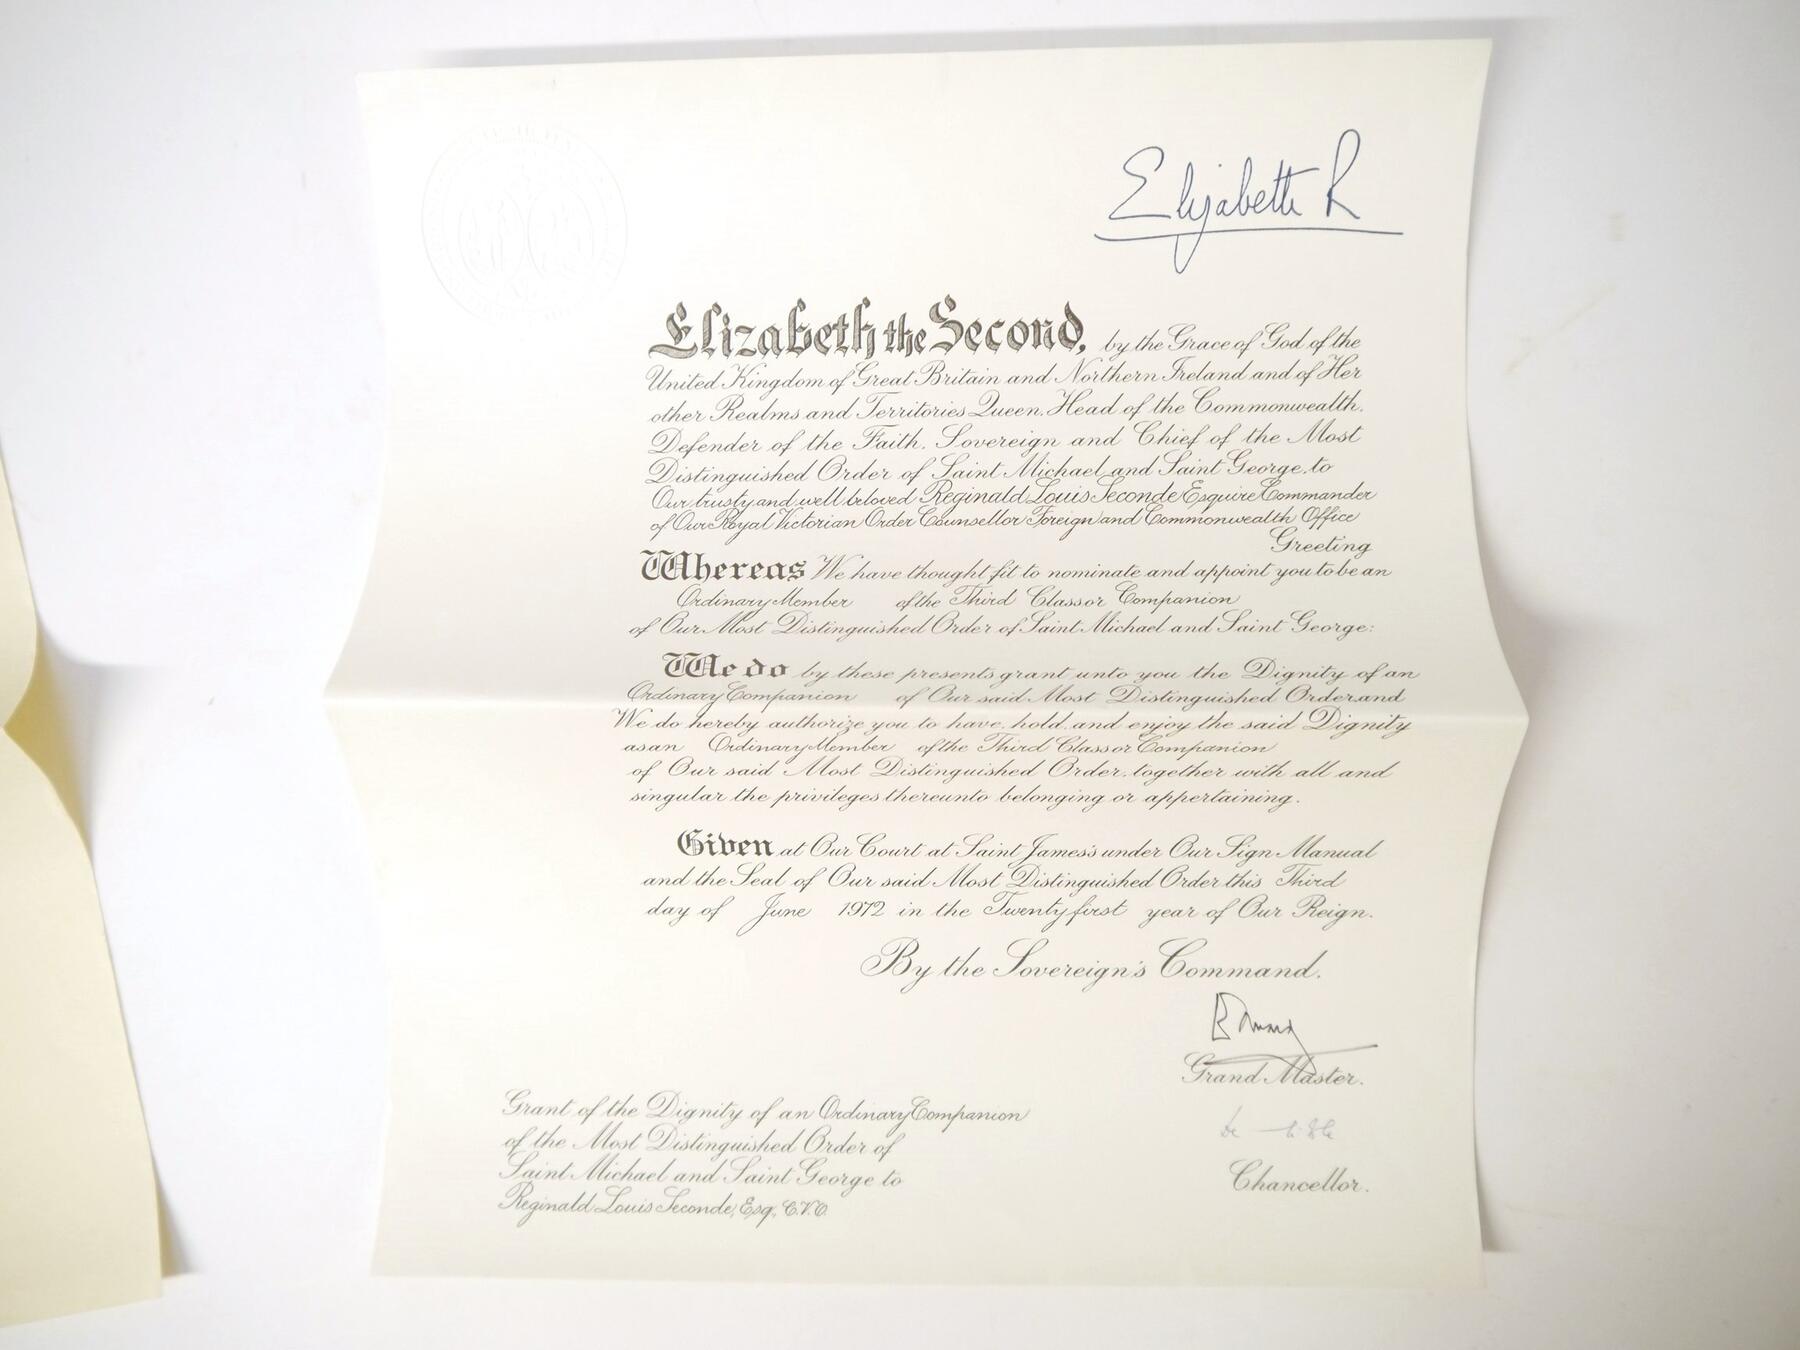 Elizabeth R
Elizabeth the Second, by the Grace of God of the
United Kingdom of Great Britain and Northern Ireland and of Her
other Realms and Territories Queen, Head of the Commonwealth,
Defender of the Faith, Sovereign and Chief of the Most
Distinguished Order of Saint Michael and Saint George, to
Our trusty and well beloved Reginald Louis Seconde Esquire Commander
of Our Royal Victorian Order Counsellor Foreign and Commonwealth Office
Greeting
Whereas We have thought fit to nominate and appoint you to be an
Ordinary Member of the Third Class or Companion
of Our Most Distinguished Order of Saint Michael and Saint George:
We do by these presents grant unto you the Dignity of an
Ordinary Companion of Our said Most Distinguished Order and
We do hereby authorize you to have, hold, and enjoy the said Dignity
as an Ordinary Member of the Third Class or Companion
of Our said Most Distinguished Order, together with all and
singular the privileges thereunto belonging or appertaining.
Given at Our Court at Saint James's under Our Sign Manual
and the Seal of Our said Most Distinguished Order this Third
day of June 1972 in the Twenty first year of Our Reign.
By the Sovereign's Command.
Grand Master.
Chancellor.
Grant of the Dignity of an Ordinary Companion
of the Most Distinguished Order of
Saint Michael and Saint George to
Reginald Louis Seconde, Esq., C.V.O.